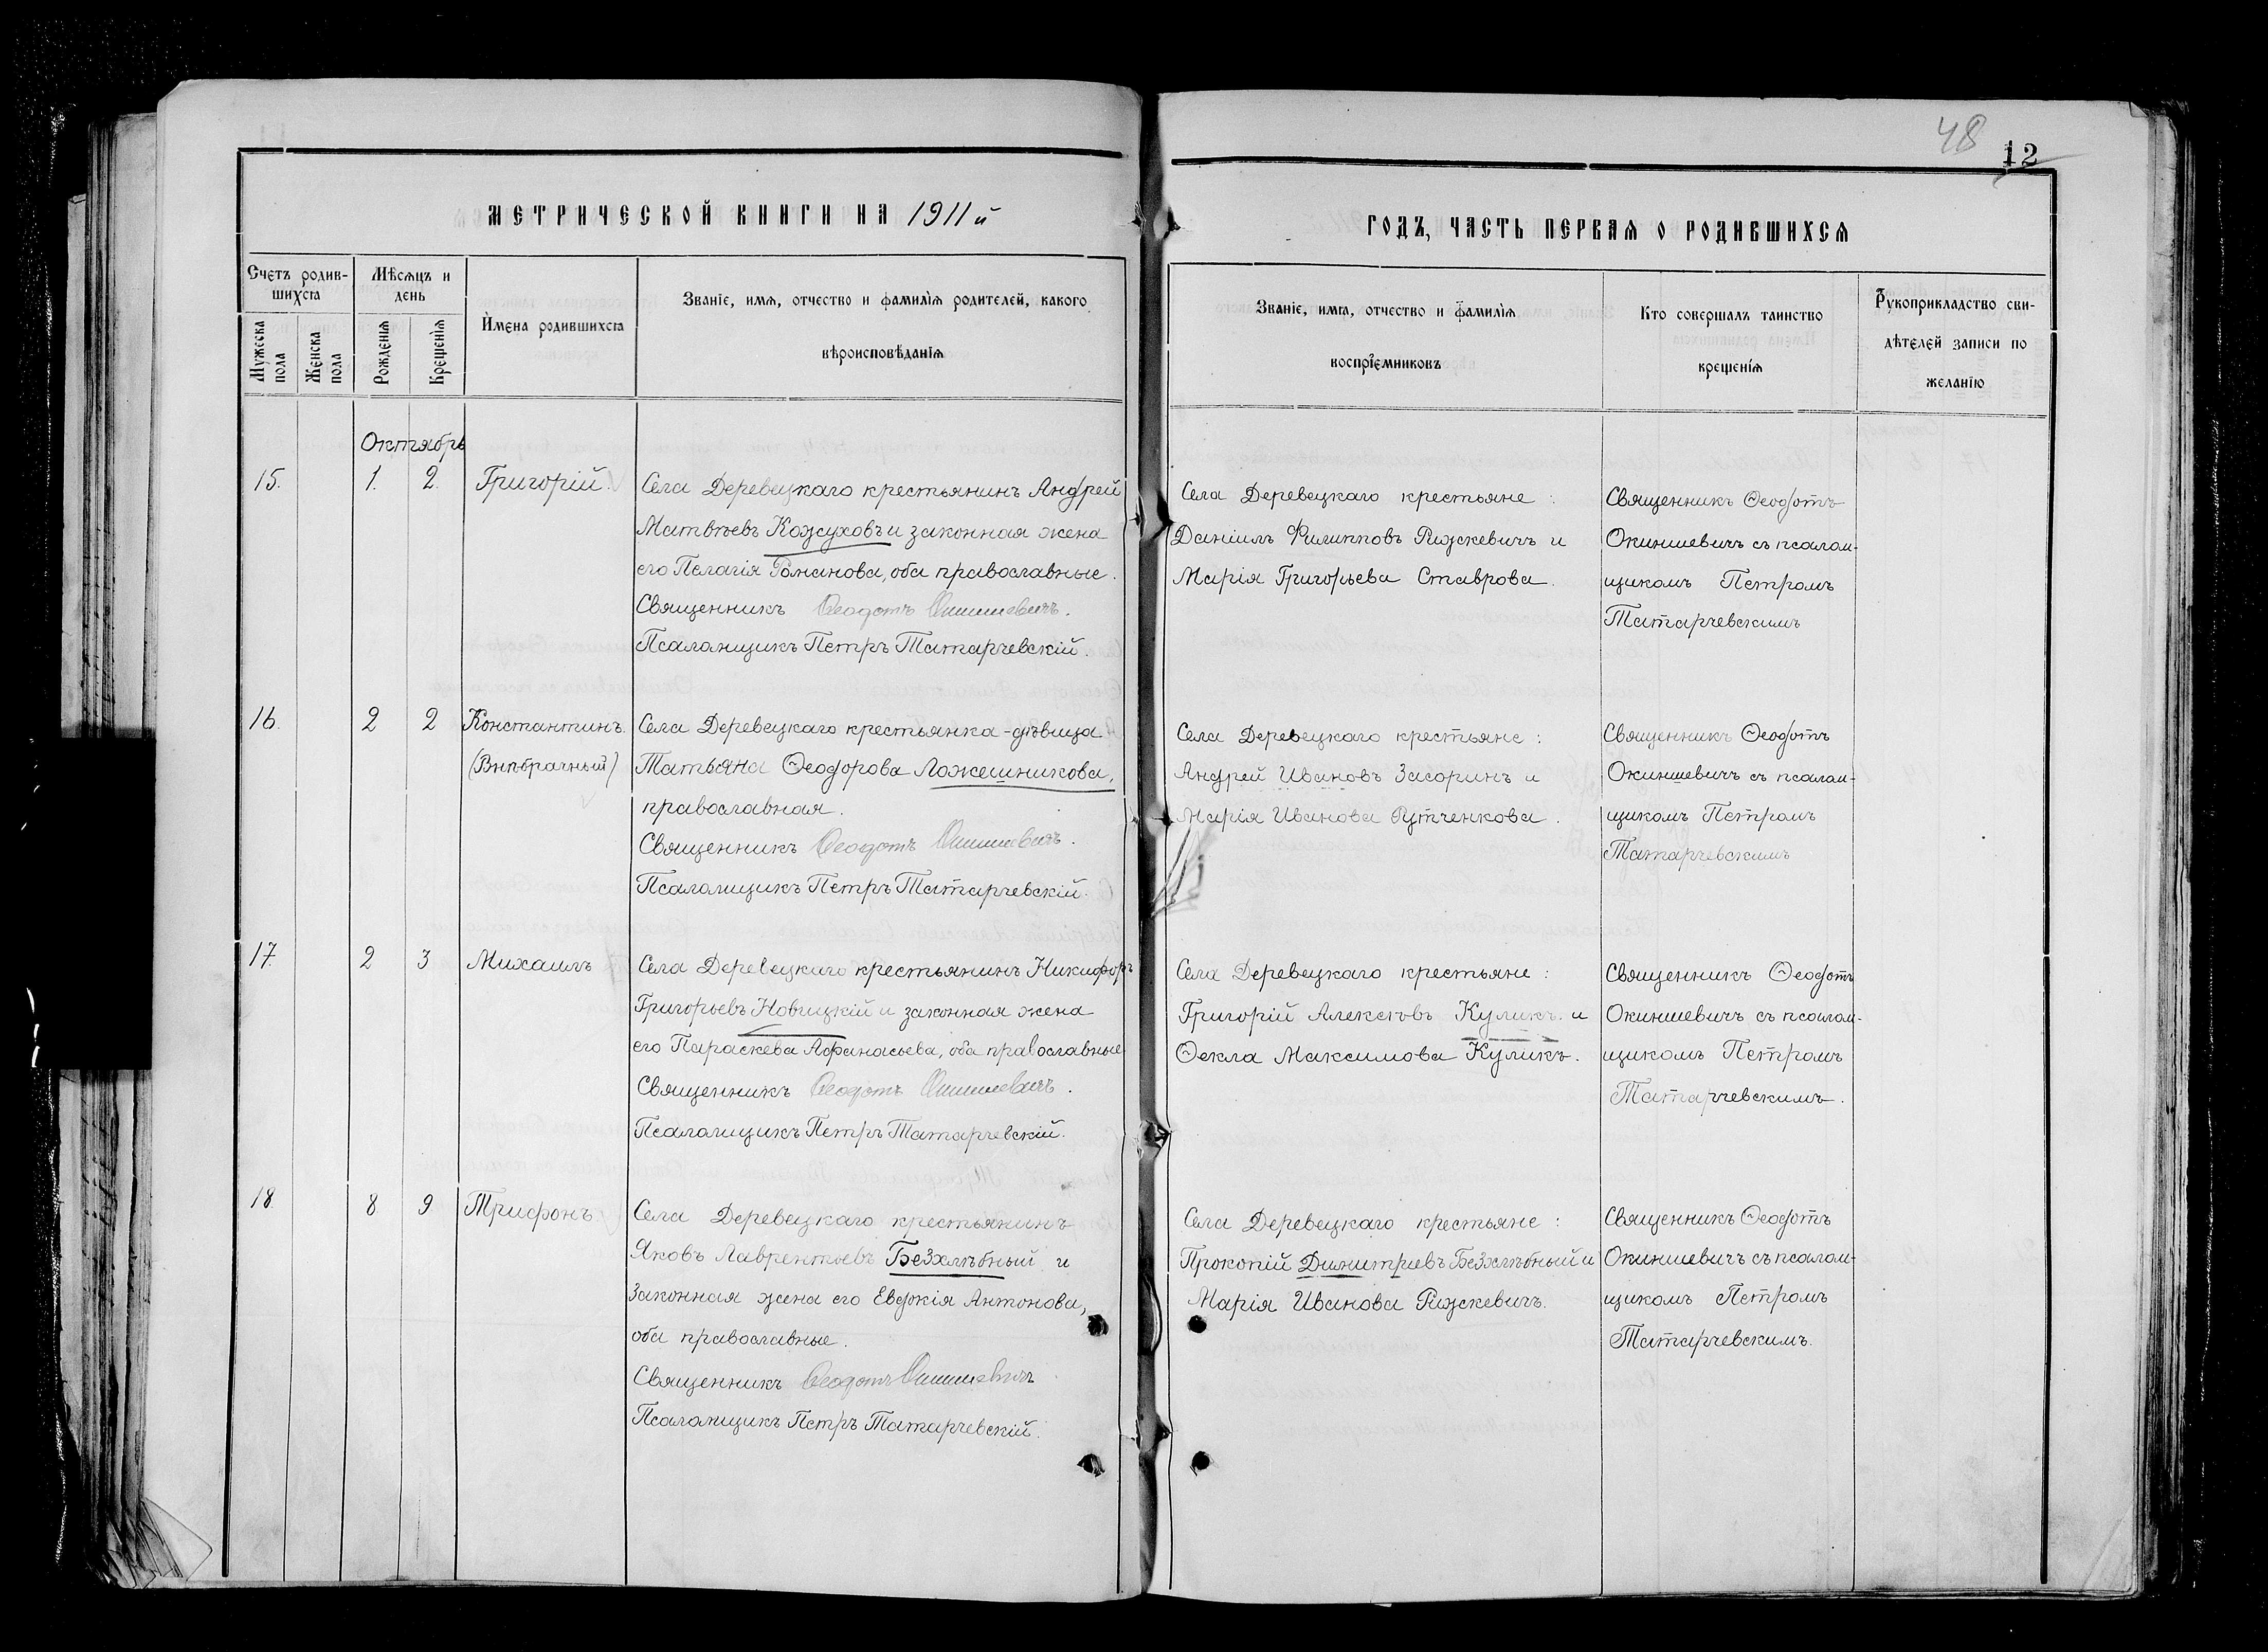 48
12
МЕТРИЧЕСКОЙ КНИГИ НА 1911й
ГОДЪ, ЧАСТЬ ПЕРВАЯ О РОДИВШИХСЯ
Счетъ родив-
шихся
Мѣсяцъ и
день
Мужеска
пола
Женска
пола
Рожденія
Крещенія
Имена родившихся
Званіе, имя, отчество и фамилія родителей, какого
вѣроисповѣданія
Званіе, имя, отчество и фамилія
воспріемниковъ
Кто совершалъ таинство
крещенія
Рукоприкладство сви-
дѣтелей записи по
желанію
Октябрь
15. 1. 2. Григорій.
Села Деревецкаго крестьянинъ Андрей
Матвѣевъ Кожуховъ и законная жена
его Пелагія Романова, оба православные.
Священникъ Ѳеодотъ Окиншевичъ.
Псаломщикъ Петръ Татарчевскій.
Села Деревецкаго крестьяне:
Даніилъ Филипповъ Ряжскевичъ и
Марія Григорьева Ставрова.
Священникъ Ѳеодотъ
Окиншевичъ съ псалом-
щикомъ Петромъ
Татарчевскимъ
16. 2 2 Константинъ.
(Внѣбрачный)
Села Деревецкаго крестьянка-дѣвица
Татьяна Ѳеодорова Ложешникова,
православная.
Священникъ Ѳеодотъ Окиншевичъ.
Псаломщикъ Петръ Татарчевскій.
Села Деревецкаго крестьяне:
Андрей Ивановъ Засоринъ и
Марія Иванова Рутченкова.
Священникъ Ѳеодотъ
Окиншевичъ съ псалом-
щикомъ Петромъ
Татарчевскимъ
17. 2 3 Михаилъ
Села Деревецкаго крестьянинъ Никифоръ
Григорьевъ Новицкій и законная жена
его Параскева Аѳанасьева, оба православные
Священникъ Ѳеодотъ Окиншевичъ.
Псаломщикъ Петръ Татарчевскій.
Села Деревецкаго крестьяне:
Григорій Алексѣевъ Куликъ и
Ѳекла Максимова Куликъ.
Священникъ Ѳеодотъ
Окиншевичъ съ псалом-
щикомъ Петромъ
Татарчевскимъ.
18. 8. 9 Трифонъ.
Села Деревецкаго крестьянинъ
Яковъ Лаврентьевъ Безхлѣбный и
законная жена его Евдокія Антонова,
оба православные.
Священникъ Ѳеодотъ Окиншевичъ
Псаломщикъ Петръ Татарчевскій.
Села Деревецкаго крестьяне:
Прокопій Димитріевъ Безхлѣбный и
Марія Иванова Ряжскевичъ.
Священникъ Ѳеодотъ
Окиншевичъ съ псалом-
щикомъ Петромъ
Татарчевскимъ.